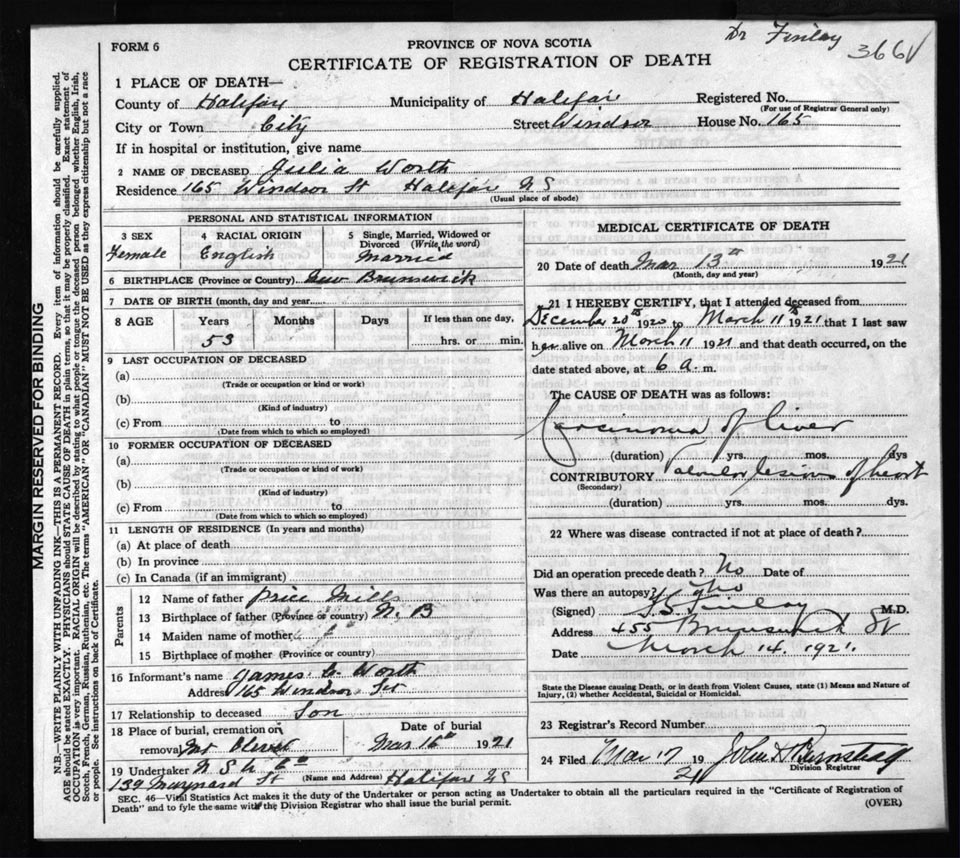 Dr Finlay
3661
FORM 6
PROVINCE OF NOVA SCOTIA
CERTIFICATE OF REGISTRATION OF DEATH
1 PLACE OF DEATH—
County of Halifax Municipality of Halifax Registered No.
(For use of Registrar General only)
City or Town City Street Windsor House No. 165
If in hospital or institution, give name
2 NAME OF DECEASED Julia Worth
Residence 165 Windsor St Halifax N S
(Usual place of abode)
PERSONAL AND STATISTICAL INFORMATION
3 SEX 4 RACIAL ORIGIN 5 Single, Married, Widowed or Divorced (Write the word)
Female English Married
6 BIRTHPLACE (Province or Country) New Brunswick
7 DATE OF BIRTH (month, day and year)
8 AGE Years Months Days If less than one day,
53 hrs. or min.
9 LAST OCCUPATION OF DECEASED
(a)
(Trade or occupation or kind or work)
(b)
(Kind of industry)
(c) From to
(Date from which to which so employed)
10 FORMER OCCUPATION OF DECEASED
(a)
(Trade or occupation or kind of work)
(b)
(Kind of industry)
(c) From to
(Date from which to which so employed)
11 LENGTH OF RESIDENCE (In years and months)
(a) At place of death
(b) In province
(c) In Canada (if an immigrant)
Parents
12 Name of father Price Mills
13 Birthplace of father (Province or country) N. B
14 Maiden name of mother
15 Birthplace of mother (Province or country)
16 Informant's name James Worth
Address 165 Windsor St
17 Relationship to deceased Son
18 Place of burial, cremation or removal Mt Olivet
Date of burial
Mar 16th 1921
19 Undertaker N S U Co
139 Maynard St (Name and Address) Halifax N S
MEDICAL CERTIFICATE OF DEATH
20 Date of death Mar 13th 1921
(Month, day and year)
21 I HEREBY CERTIFY, that I attended deceased from
December 20th 1920 to March 11th 1921 that I last saw
her alive on March 11 1921 and that death occurred, on the
date stated above, at 6 a. m.
The CAUSE OF DEATH was as follows:
Carcinoma of liver
(duration) yrs. mos. dys
CONTRIBUTORY Valvular lesion of heart
(Secondary)
(duration) yrs. mos. dys.
22 Where was disease contracted if not at place of death?
Did an operation precede death? No Date of
Was there an autopsy? No
(Signed) Finlay M.D.
Address 455 Brunswick St
Date March 14. 1921.
State the Disease causing Death, or in death from Violent Causes, state (1) Means and Nature of
Injury, (2) whether Accidental, Suicidal or Homicidal.
23 Registrar's Record Number
24 Filed Mar 17 1921 John
Division Registrar
SEC. 46—Vital Statistics Act makes it the duty of the Undertaker or person acting as Undertaker to obtain all the particulars required in the "Certificate of Registration of
Death" and to fyle the same with the Division Registrar who shall issue the burial permit.
(OVER)
MARGIN RESERVED FOR BINDING
N.B.—WRITE PLAINLY WITH UNFADING INK—THIS IS A PERMANENT RECORD. Every item of information should be carefully supplied.
AGE should be stated EXACTLY. PHYSICIANS should STATE CAUSE OF DEATH in plain terms, so that it may be properly classified. Exact statement of
OCCUPATION is very important. RACIAL ORIGIN will be described by stating to what people or tongue the deceased person belonged whether English, Irish,
Scotch, French, German, Russian, Ruthenian, etc. The terms "AMERICAN" OR "CANADIAN" MUST NOT BE USED as they express citizenship but not a race
or people. See instructions on back of Certificate.